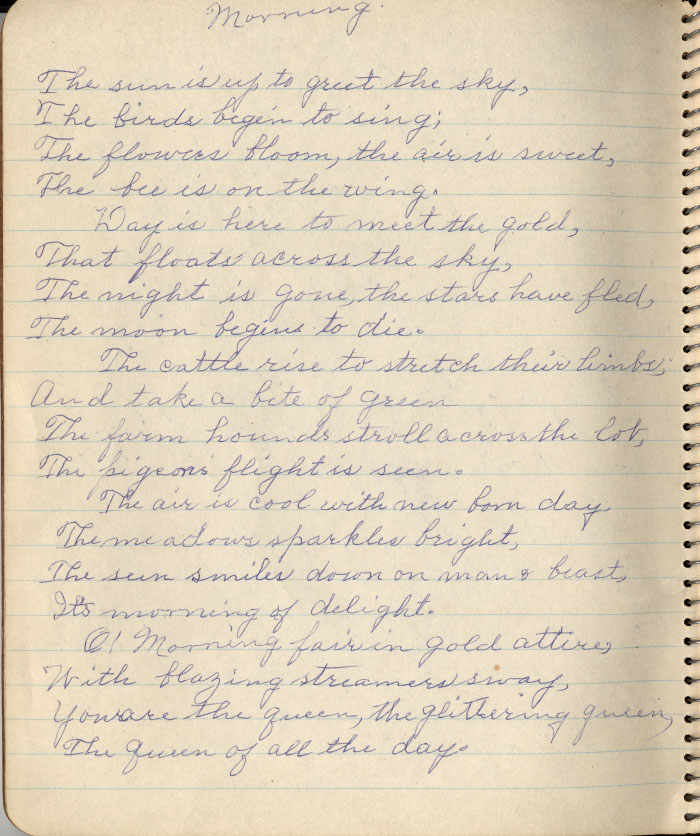 Morning.
The sun is up to greet the sky,
The birds begin to sing;
The flowers bloom, the air is sweet,
The bee is on the wing.
Day is here to meet the gold,
That floats across the sky,
The night is gone, the stars have fled,
The moon begins to die.
The cattle rise to stretch their limbs;
And take a bite of green
The farm hounds stroll across the lot,
The pigeons flight is seen.
The air is cool with new born day.
The meadows sparkles bright,
The sun smiles down on man & beast,
Its morning of delight.
O! Morning fair in gold attire,
With blazing streamers sway,
You are the queen, the glittering queen,
The queen of all the day.